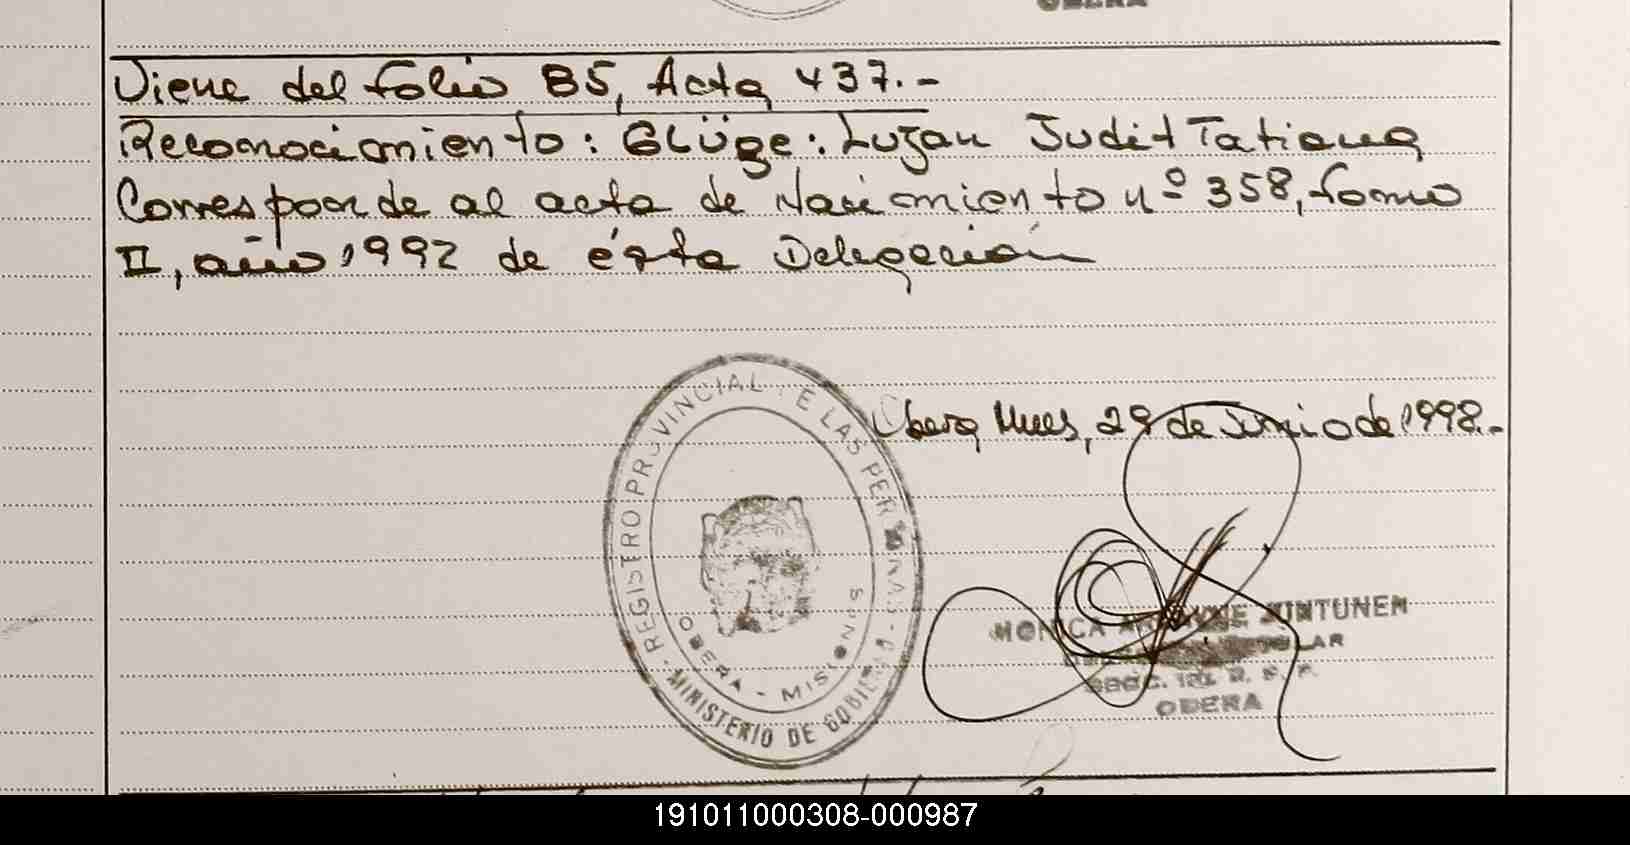 OBERA
Viene del folio 85, Acta 437.-
Reconocimiento: GLüge: Lujan Judit Tatiana
Corresponde al acta de Nacimiento nº 358, tomo
II, año 1992 de ésta Delegación
REGISTRO PROVINCIAL DE LAS PERSONAS
Oberá Mnes, 29 de Junio de 1998.-
MONICA JUNTUNEN
OBERA - MISIONES
MINISTERIO DE GOBIERNO
OBERA
191011000308-000987